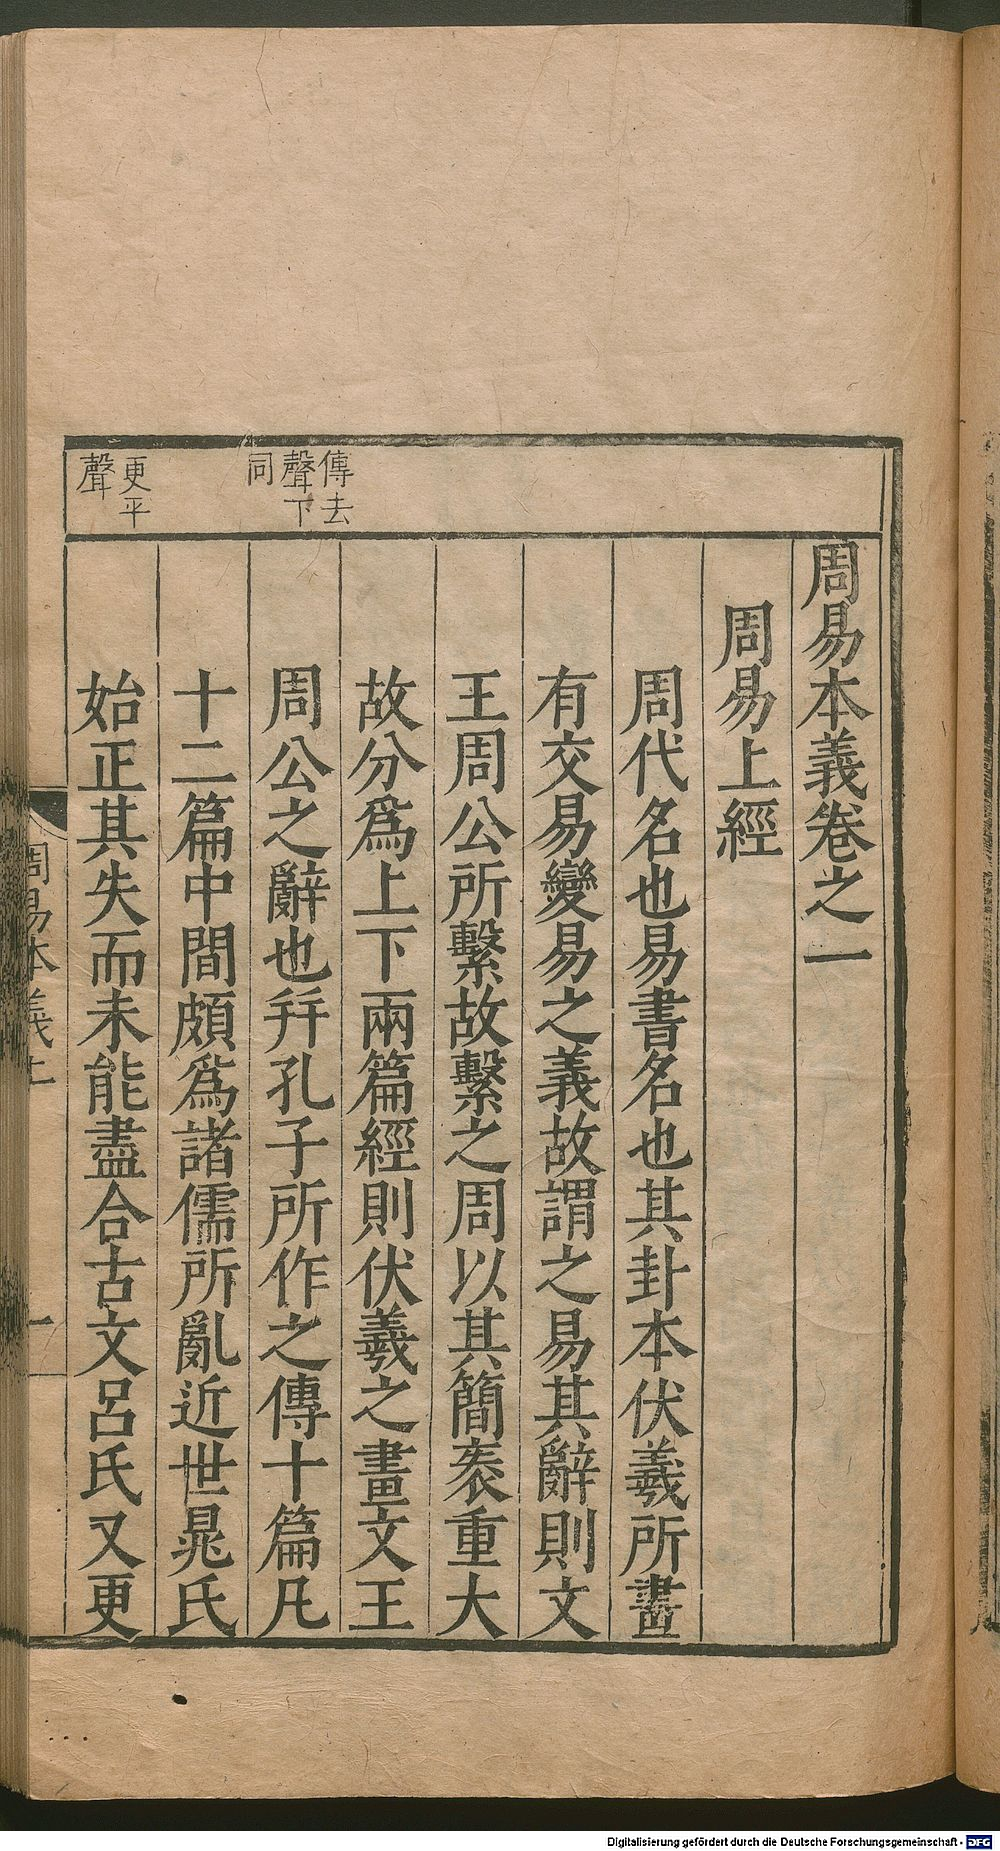 周易本義卷之一
周易上經
周代名也易書名也其卦本伏羲所畫
有交易變易之義故謂之易其辭則文
王周公所繫故繫之周以其簡袠重大
故分爲上下兩篇經則伏羲之畫文王
周公之辭也幷孔子所作之傳十篇凡
十二篇中間頗爲諸儒所亂近世晁氏
始正其失而未能盡合古文呂氏又更
傳去
聲下
同
更平
聲
周易本義上
一
Digitalisierung gefördert durch die Deutsche Forschungsgemeinschaft - DFG